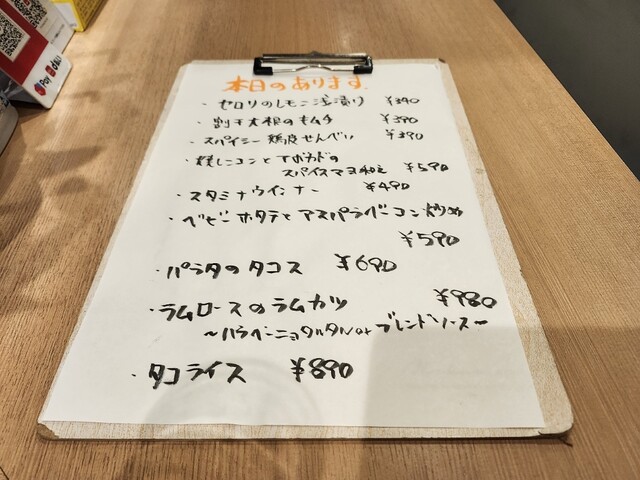 本日のあります。
・セロリのレモン浅漬り ¥390
・割干大根のキムチ ¥390
・スパイシー鶏皮せんべい ¥390
・蒸しコーンとアボカドの
スパイスマヨ和え ¥590
・スタミナウインナー ¥490
・ベビーホタテとアスパラベーコン炒め
¥590
・パラタのタコス ¥690
・ラムロースのラムカツ ¥980
〜ハラペーニョタルタル or ブレンドソース〜
・タコライス ¥890
Pay